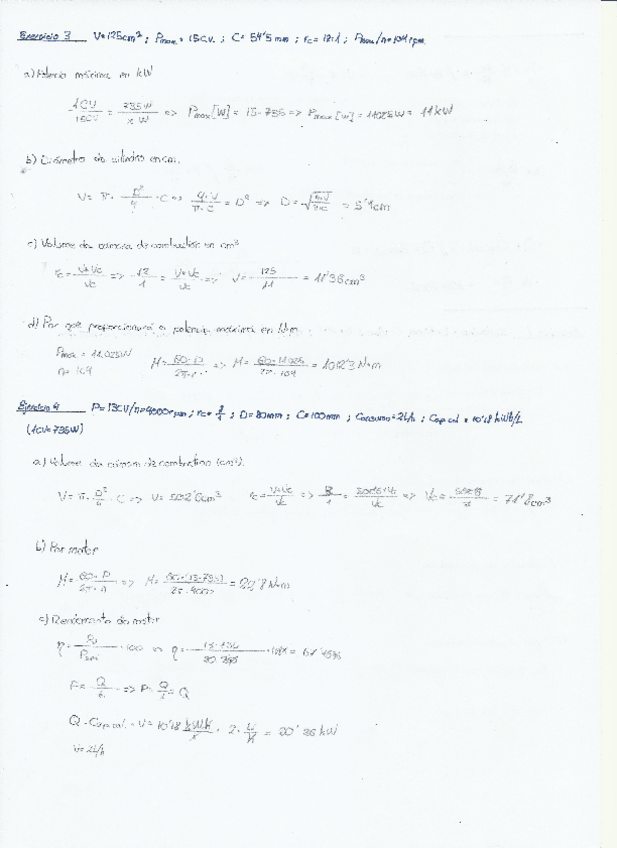 Ejercicio 3 V=125cm³ ; Pmax = 15CV. ; C= 54'5mm ; rc = 12:1 ; Pmax/n=10⁴ rpm.
a) Potencia máxima en kW
1CV/15CV = 735W/x W => Pmax[W] = 15·735 => Pmax[W] = 11025W = 11kW
b) Diámetro de cilindro en cm.
V= π· D²/4 ·C => 4·V/π·C = D² => D= √(4·V/π·C) = 5'4cm
c) Volume da cámara de combustión en cm³
rc= V+Vc/Vc => 12/1 = V+Vc/Vc => V= 125/11 = 11'36cm³
d) Par que proporcionará a potencia máxima en N·m
Pmax = 11.025W
n= 10⁴
M= 60·P/2π·n => M= 60·11025/2π·10⁴ = 10'23 N·m
Ejercicio 4 P=13CV/n=4000rpm ; rc= 8/1 ; D=80mm ; C=100mm ; Consumo=2L/h ; Cap cal = 10'18 kWh/L
(1CV=735W)
a) Volume da cámara de combustión (cm³).
V= π· D²/4 ·C => V= 502'6cm³ rc= V+Vc/Vc => 8/1 = => Vc= = 71'8cm³
b) Par motor
M= 60·P/2π·n => M= /2π·4000 = N·m
c) Rendimento do motor
η= ·100 η= =
P= Q/t => P= Q/1 = Q
Q = Cap cal · V= 10'18 kWh/L · 2· L/h = 20'36 kW
V=2L/h